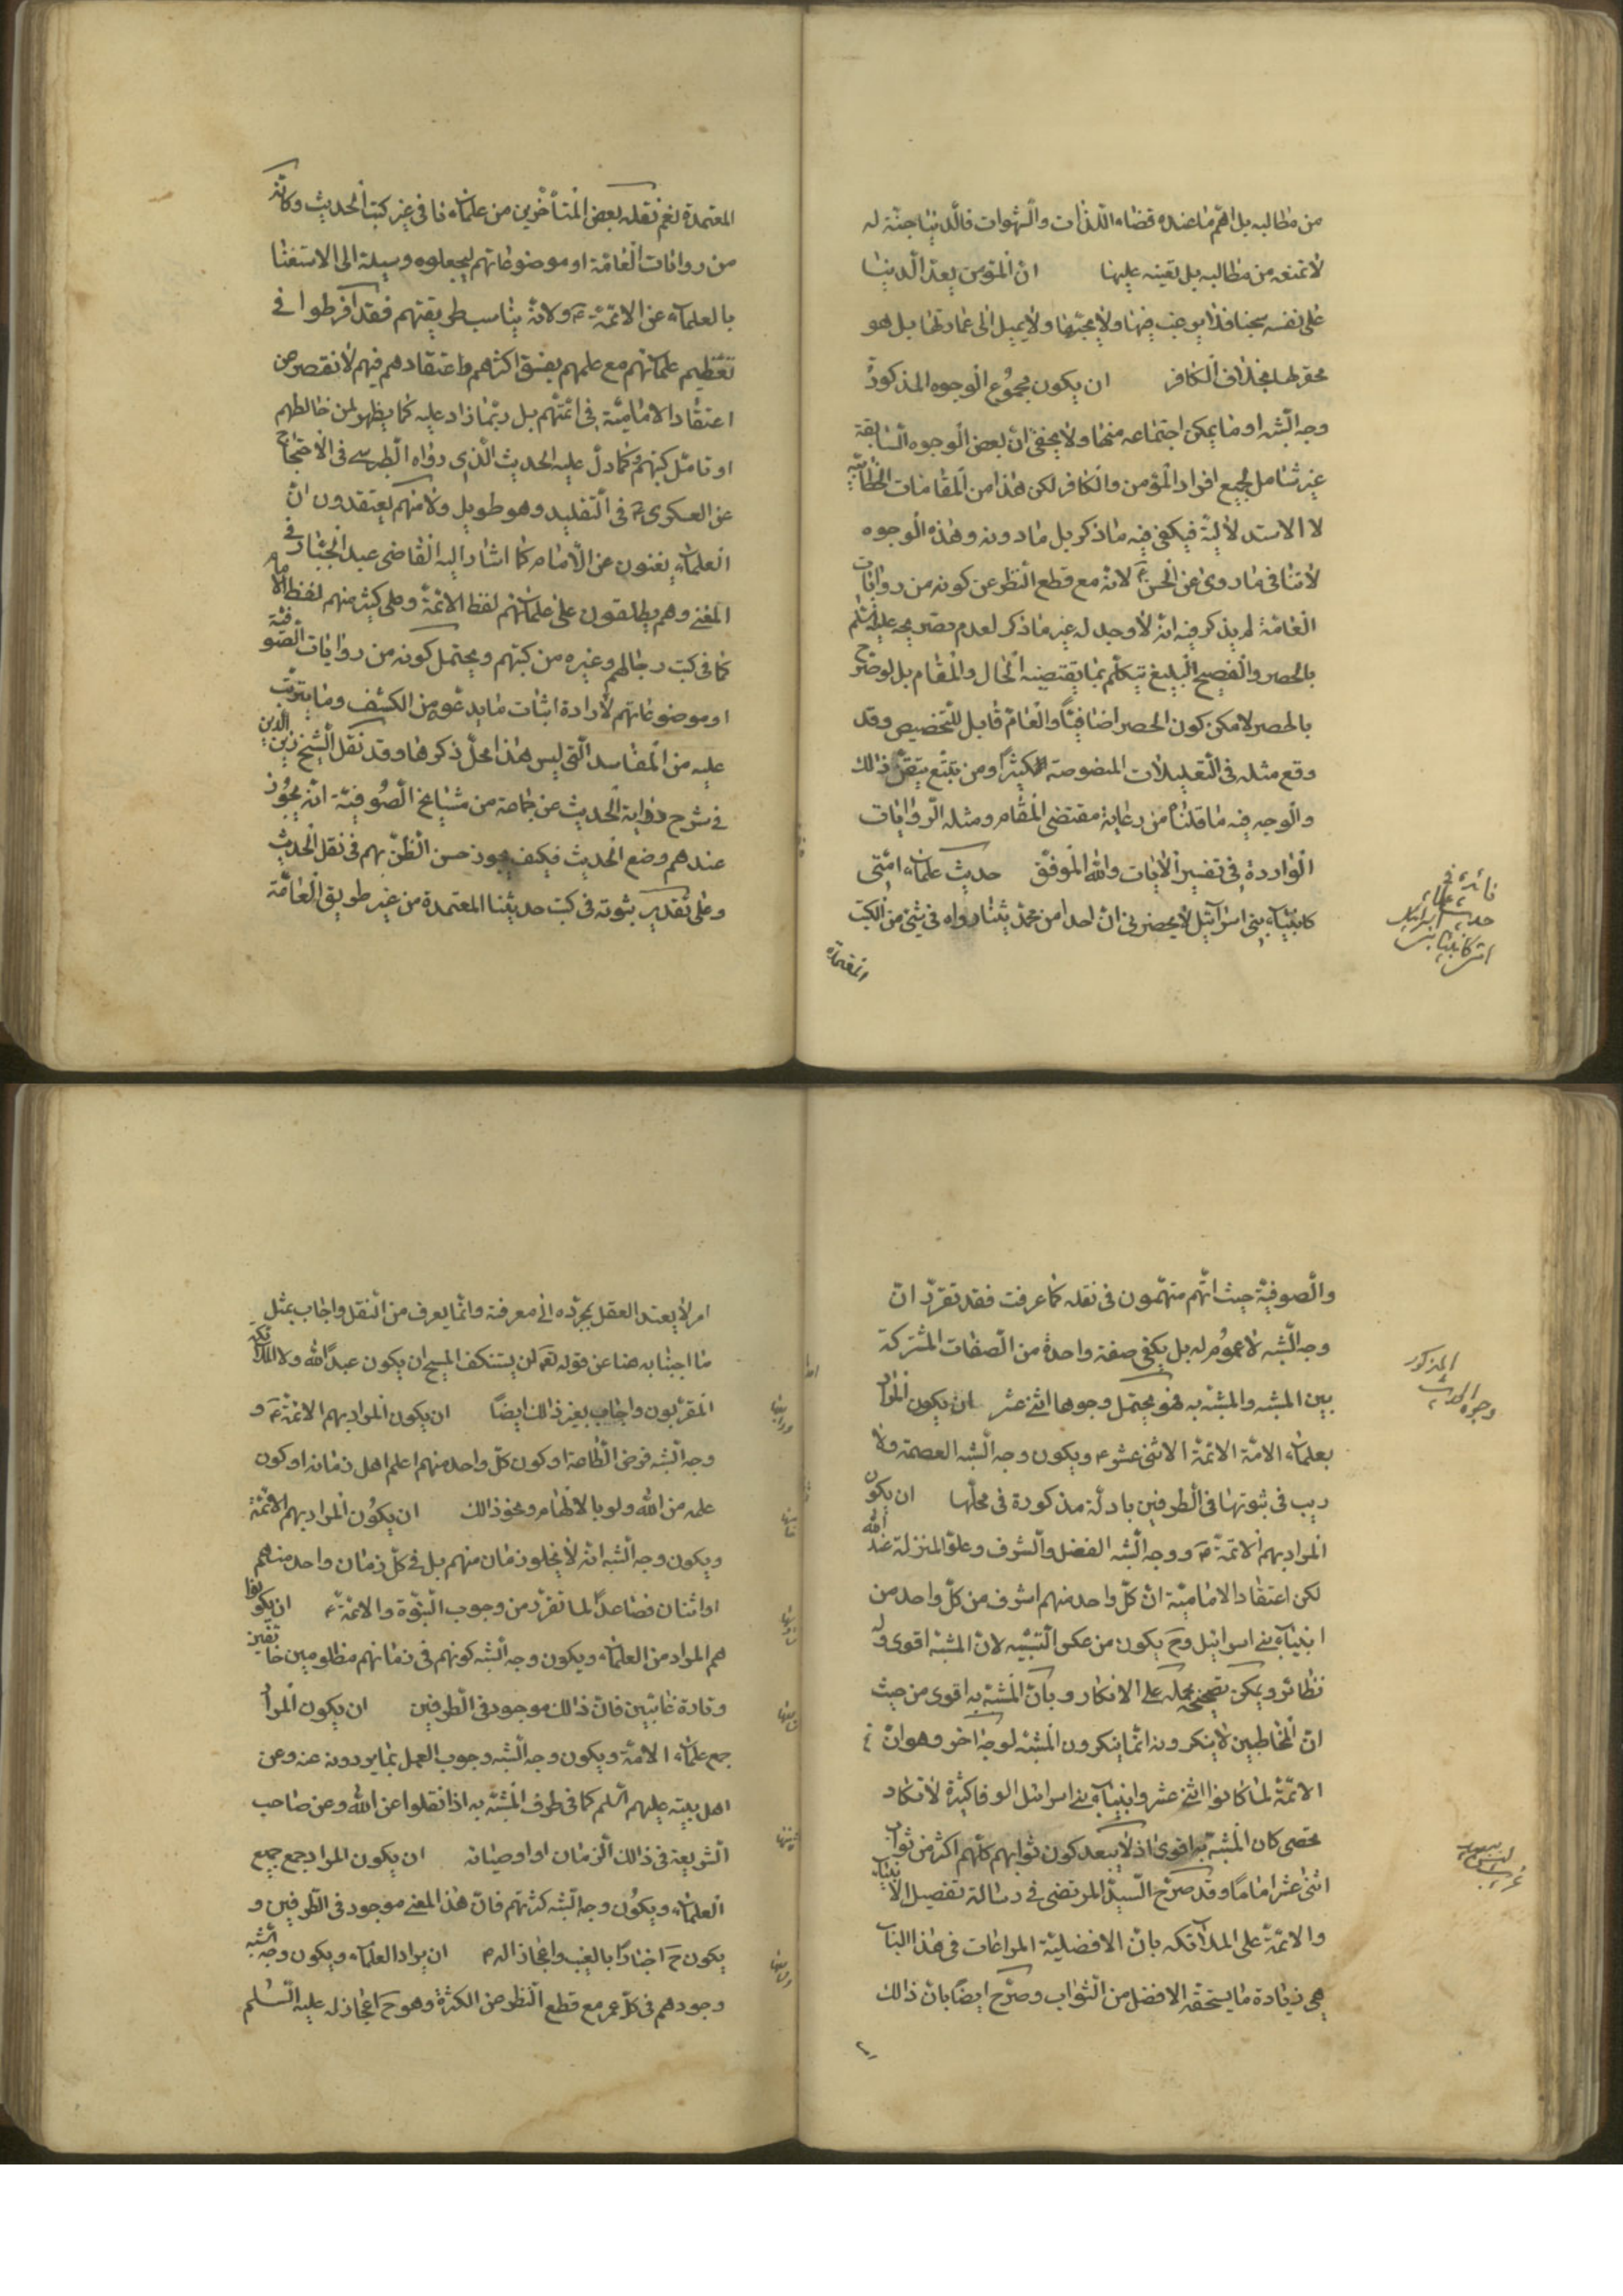 من مطالبه بل اهم ما عنده قضاء اللذات والشهوات فالدنيا جنة له
لا تمنعه من مطالبه بل تعينه عليها ان المؤمن يعد الدنيا
على نفسه سجنا فلا يرغب فيها ولا يحبها ولا يميل الى عمارتها بل هو
محقر لها بخلاف الكافر ان يكون مجموع الوجوه المذكورة
وجه الشبه او ما يمكن اجتماعه منها ولا يخفى ان بعض الوجوه السابقة
غير شامل لجميع افراد المؤمن والكافر لكن هذا من المقامات الخطابية
لا الاستدلالية فيكفي فيه ما ذكر بل ما دونه وهذه الوجوه
لا تنافى ما روى عن الحسن ع لانه مع قطع النظر عن كونه من روايات
العامة لم يذكر فيه انه لا وجه له غير ما ذكر لعدم تصريحه عليه السلم
بالحصر والفصيح البليغ يتكلم بما يقتضيه الحال والمقام بل لو صرح
بالحصر لامكن كون الحصر اضافيا والعام قابل للتخصيص وقد
وقع مثله في التعليلات المنصوصة كثيرا ومن تتبع تيقن ذلك
والوجه فيه ما قلناه من رعاية مقتضى المقام ومثله الروايات
الواردة في تفسير الايات والله الموفق حديث علماء امتى
كانبياء بني اسرائيل لا يحضرني ان احدا من محدثينا رواه في شئ من الكتب
المعتمدة
فائدة في
حديث علماء
امتي كانبياء بني اسرائيل
المعتمدة نعم نقله بعض المتأخرين من علمائنا في غير كتب الحديث وكانه
من روايات العامة او موضوعاتهم ليجعلوه وسيلة الى الاستغنا
بالعلماء عن الائمة ع ولانه يناسب طريقتهم فقد افرطوا في
تعظيم علمائهم مع علمهم بفسق اكثرهم واعتقادهم فيهم لا نقصر عن
اعتقاد الامامية في ائمتهم بل ربما زاد عليه كما يظهر لمن خالطهم
او تامل كتبهم وكما دل عليه الحديث الذي رواه الطبرسي في الاحتجاج
عن العسكرى ع في التقليد وهو طويل ولانهم يعتقدون ان
العلماء يغنون عن الامام كما اشار اليه القاضى عبد الجبار في
المغني وهم يطلقون على علمائهم لفظ الائمة وعلى كثير منهم لفظ الامام
كما في كتب رجالهم وغيره من كتبهم ويحتمل كونه من روايات الصوفية
او موضوعاتهم لارادة اثبات ما يدعونه من الكشف وما يترتب
عليه من المفاسد التي ليس هذا محل ذكرها وقد نقل الشيخ زين الدين
في شرح دراية الحديث عن جماعة من مشايخ الصوفية انه يجوز
عندهم وضع الحديث فكيف يجوز حسن الظن بهم في نقل الحديث
وعلى تقدير ثبوته في كتب حديثنا المعتمدة من غير طريق العامة
والصوفية حيث انهم متهمون في نقله كما عرفت فقد تقرر ان
وجه الشبه لا عموم له بل يكفي صفة واحدة من الصفات المشتركة
بين المشبه والمشبه به فهو يحتمل وجوها اثنى عشر ان يكون المراد
بعلماء الامة الائمة الاثنى عشر ع ويكون وجه الشبه العصمة ولا
ريب في ثبوتها في الطرفين بادلة مذكورة في محلها ان يكون
المراد بهم الائمة ع ووجه الشبه الفضل والشرف وعلو المنزلة عند الله
لكن اعتقاد الامامية ان كل واحد منهم اشرف من كل واحد من
انبياء بني اسرائيل وح يكون من عكس التشبيه لان المشبه اقوى وله
نظائر ويمكن تصحيحه بحمله على الانكار وبان المشبه به اقوى من حيث
ان المخاطبين لا ينكرونه انما ينكرون المشبه لوجه اخر وهو ان
الائمة لما كانوا اثنى عشر وانبياء بني اسرائيل الوفا كثيرة لا تكاد
تحصى كان المشبه به اقوى اذ لا يبعد كون ثوابهم كلهم اكثر من ثواب
اثنى عشر اماما وقد صرح السيد المرتضى في رسالة تفضيل الانبياء
والائمة على الملائكه بان الافضلية المراعات في هذا الباب
هي زيادة ما يستحقه الافضل من الثواب وصرح ايضا بان ذلك
وجوه الحديث
المذكور
امر لا يعتد العقل بمجرده الى معرفته وانما يعرف من النقل واجاب بمثل
ما اجبنا به هنا عن قوله تعه لن يستنكف المسيح ان يكون عبدا لله ولا الملائكة
المقربون واجاب بغير ذلك ايضا ان يكون المراد بهم الائمة ع و
وجه الشبه فرض الطاعة او كون كل واحد منهم اعلم اهل زمانه او كون
علمه من الله ولو بالالهام ونحو ذلك ان يكون المراد بهم الائمة
ويكون وجه الشبه انه لا يخلو زمان منهم بل في كل زمان واحد منهم
او اثنان فصاعدا لما تقرر من وجوب النبوة والائمة ع ان يكونوا
هم المراد من العلماء ويكون وجه الشبه كونهم في زمانهم مظلومين خائفين
وتارة غائبين فان ذلك موجود في الطرفين ان يكون المراد
جمع علماء الامة ويكون وجه الشبه وجوب العمل بما يردونه عنه وعن
اهل بيته عليهم السلم كما في طرف المشبه به اذا نقلوا عن الله وعن صاحب
الشريعة في ذلك الزمان او اوصيائه ان يكون المراد جمع جميع
العلماء ويكون وجه الشبه كثرتهم فان هذا المعني موجود في الطرفين و
يكون ح اخبارا بالغيب واعجاز اله ع ان يراد العلماء ويكون وجه الشبه
وجودهم في كل عصر مع قطع النظر عن الكثرة وهو ح اعجاز له عليه السلم